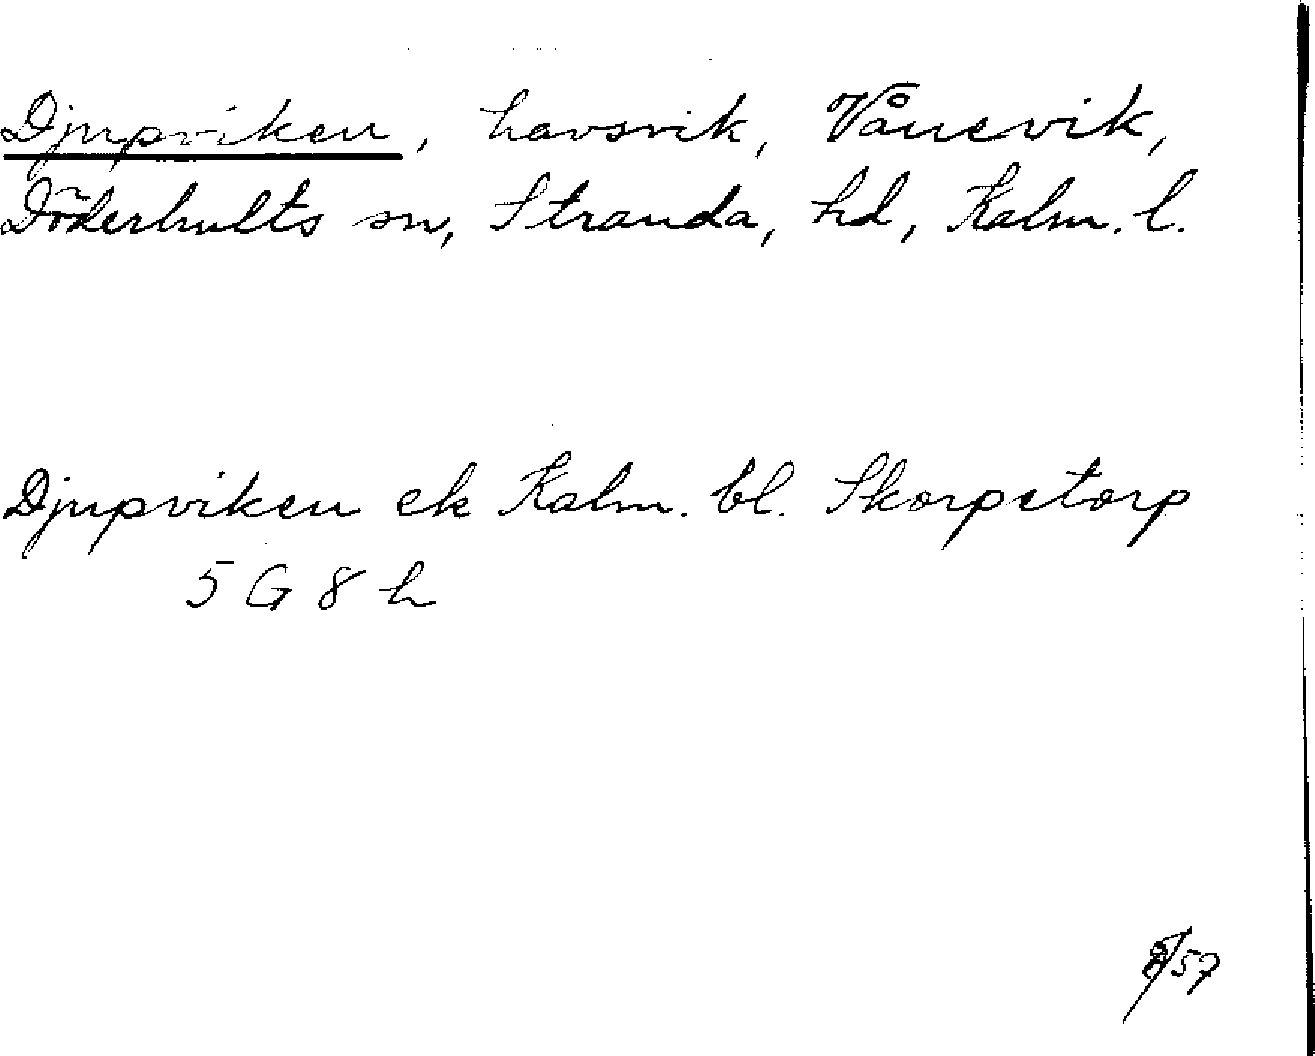 Djupviken, havsvik, Vånevik,
Döderhults sn, Stranda, hd, Kalm. l.
Djupviken ek Kalm. bl. Skorpetorp
5 G 8 h
/57